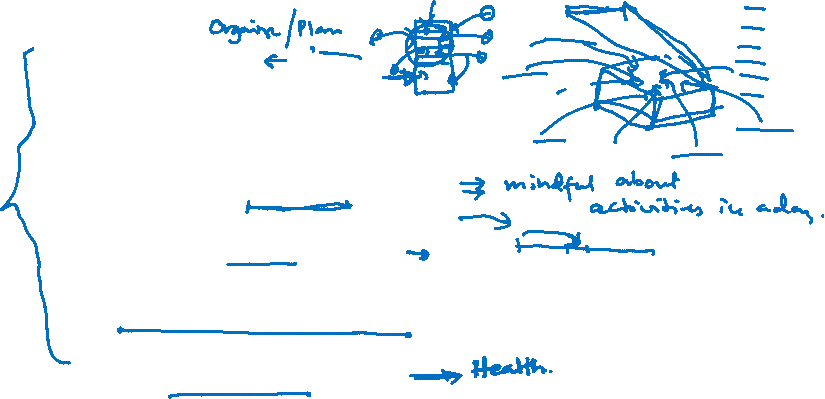 Organize/Plan
mindful about
activities in a day.
Health.